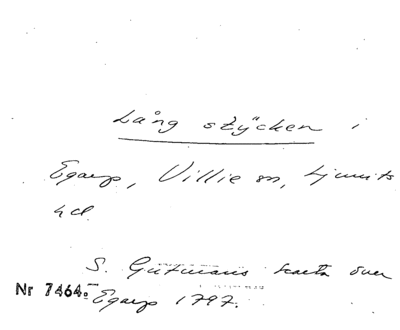 Lång stÿcken i
Egarp, Villie sn, Ljunits
hd.
S. Gutmans karta över
Nr 7464. Egarp 1797.